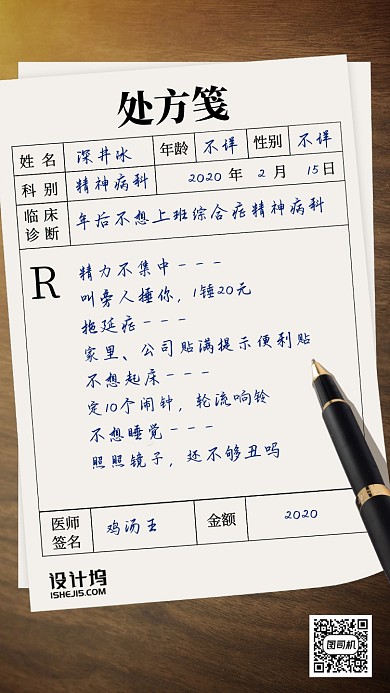 处方笺
姓名 深井冰 年龄 不详 性别 不详
科别 精神病科 2020 年 2 月 15 日
临床诊断 年后不想上班综合症精神病科
R
精力不集中---
叫旁人捶你，1锤20元
拖延症---
家里、公司贴满提示便利贴
不想起床---
定10个闹钟，轮流响铃
不想睡觉---
照照镜子，还不够丑吗
医师签名 鸡汤王 金额 2020
设计坞
ISHEJI5.COM
图司机